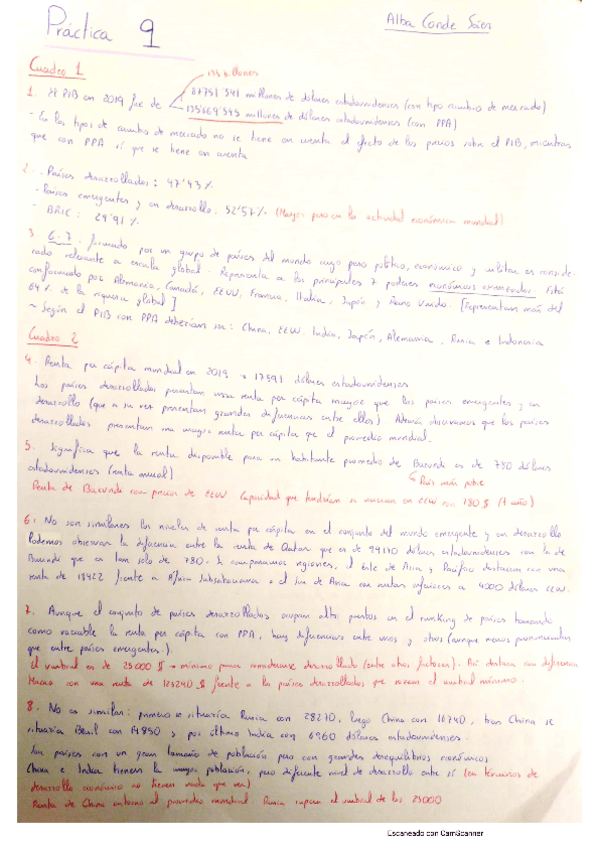 Práctica 9
Alba Conde Sáen
Cuadro 1
1. El PIB en 2019 fue de
87751'541 millones de dólares estadounidenses (con tipo cambio de mercado)
135669'343 millones de dólares estadounidenses (con PPA)
- En los tipos de cambio de mercado no se tiene en cuenta el efecto de los precios sobre el PIB, mientras
que con PPA sí que se tiene en cuenta
2. · Países desarrollados: 47'43%
· Países emergentes y en desarrollo: 52'57% (Mayor peso en la actividad económica mundial)
· BRIC: 29'91%
3. G-7. formado por un grupo de países del mundo cuyo peso político, económico y militar es conside-
rado relevante a escala global. Representa a los principales 7 países económicos avanzados. Está
conformado por Alemania, Canadá, EEUU, Francia, Italia, Japón y Reino Unido. [Representan más del
64% de la riqueza global]
~ Según el PIB con PPA deberían ser: China, EEUU, India, Japón, Alemania, Rusia e Indonesia
Cuadro 2
4. Renta per cápita mundial en 2019 → 17591 dólares estadounidenses
Los países desarrollados presentan una renta per cápita mayor que los países emergentes y en
desarrollo (que a su vez presentan grandes diferencias entre ellos). Además observamos que los países
desarrollados presentan una mayor renta per cápita que el promedio mundial.
5. Significa que la renta disponible para un habitante promedio de Burundi es de 780 dólares
estadounidenses (renta anual)
País más pobre
Renta de Burundi con precios de EEUU Capacidad que tendrían si vivieran en EEUU con 780 $ (1 año)
6. No son similares los niveles de renta per cápita en el conjunto del mundo emergente y en desarrollo
Podemos observar la diferencia entre la renta de Qatar que es de 94170 dólares estadounidenses con la de
Burundi que es tan solo de 780. Si comparamos regiones, el Este de Asia y Pacífico destacan con una
renta de 18422 frente a África Subsahariana o el Sur de Asia con rentas inferiores a 4000 dólares EEUU.
7. Aunque el conjunto de países desarrollados ocupan altos puestos en el ranking de países tomando
como variable la renta per cápita con PPA, hay diferencias entre unos y otros (aunque menos pronunciadas
que entre países emergentes).
El umbral es de 25000 $ → mínimo para considerarse desarrollado (entre otros factores). Así destaca con diferencia
Macao con una renta de 123240 $ frente a los países desarrollados que rozan el umbral mínimo.
8. No es similar: primero se situaría Rusia con 28270, luego China con 16740, tras China se
situaría Brasil con 14850 y por último India con 6960 dólares estadounidenses.
Son países con un gran tamaño de población pero con grandes desequilibrios económicos
China e India tienen la mayor población, pero diferente nivel de desarrollo entre sí (en términos de
desarrollo económico no tienen nada que ver)
Renta de China entorno al promedio mundial. Rusia supera el umbral de los 25000
Escaneado con CamScanner